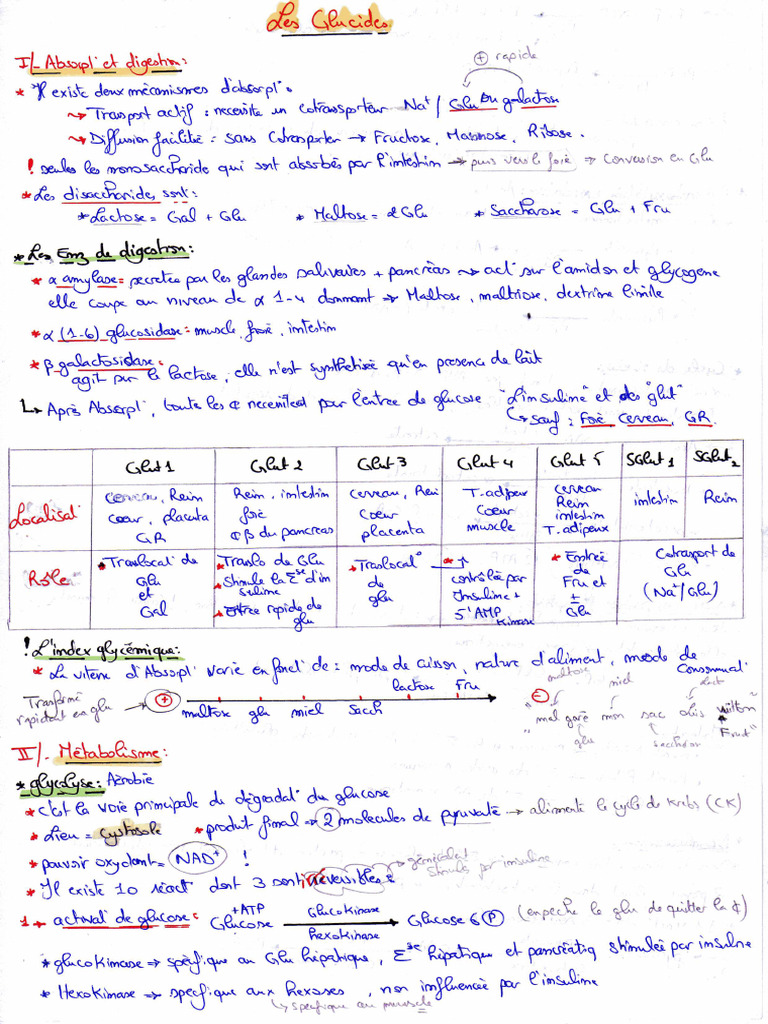 Les Glucides
I/- Absorpt° et digestion :
⊕ rapide
* Il existe deux mécanismes d'absorpt° :
→ Transport actif : necessite un cotransporteur Na⁺/ Glu ou galactose
→ Diffusion facilitée : sans cotransporter → Fructose, Mannose, Ribose.
! seules les monosaccharide qui sont absorbés par l'intestin → puis vers le foie → Conversion en Glu
* Les disaccharides sont :
* Lactose = Gal + Glu * Maltose = 2 Glu * Saccharose = Glu + Fru
* Les Enz de digestion :
* α amylase = secretée par les glandes salivaires + pancréas → act° sur l'amidon et glycogene
elle coupe au niveau de α 1-4 donnant → Maltose, maltriose, dextrine limite
* α (1-6) glucosidase = muscle, foie, intestin
* β galactosidase :
agit sur le lactose, elle n'est synthetisée qu'en presence de lait
↳ Après Absorpt°, toute les ¢ necessitent pour l'entrée de glucose "L'insuline" et des "glut"
↳ sauf : Foie, Cerveau, GR.
Glut 1 Glut 2 Glut 3 Glut 4 Glut 5 SGlut 1 SGlut 2
Localisat° cerveau, Rein coeur, placenta GR Rein, intestin foie ¢ β du pancreas cerveau, Rein coeur placenta T. adipeux Coeur muscle cerveau Rein intestin T. adipeux intestin Rein
Rôle * Translocat° de Glu et Gal * Translo de Glu * Stimule la Σse d'insuline * Entrée rapide de glu * Translocat° de glu * → contrôlée par Insuline + 5' AMP Kinase * Entrée de Fru et ± Glu Cotransport de Glu (Na⁺/Glu)
! L'index glycémique :
* La vitesse d'Absorpt° varie en fonct° de : mode de cuisson, nature d'aliment, mode de Consommat°
Transformé rapidement en glu → ⊕ maltose glu miel Sacch lactose Fru ⊖
maltose miel lact
"mal garé mon sac Louis vuitton"
glu saccharose Fruct
II/- Métabolisme :
* glycolyse : Aérobie
* c'est la voie principale du dégradat° du glucose
* Lieu = Cytosole * produit final → 2 molecules de pyruvate → alimente le cycle de Krebs (CK)
* pouvoir oxydant = NAD⁺ !
* Il existe 10 réact° dont 3 sont irréversibles : → généralement stimulés par insuline
1→ activat° de glucose : Glucose +ATP Glucokinase hexokinase → Glucose 6 Ⓟ (empeche le glu de quitter la ¢)
* glucokinase → spécifique au Glu hépatique, Σse hépatique et pancréatiq stimulée par insuline
* Hexokinase → specifique aux hexoses, non influencée par l'insuline
↳ specifique au muscle